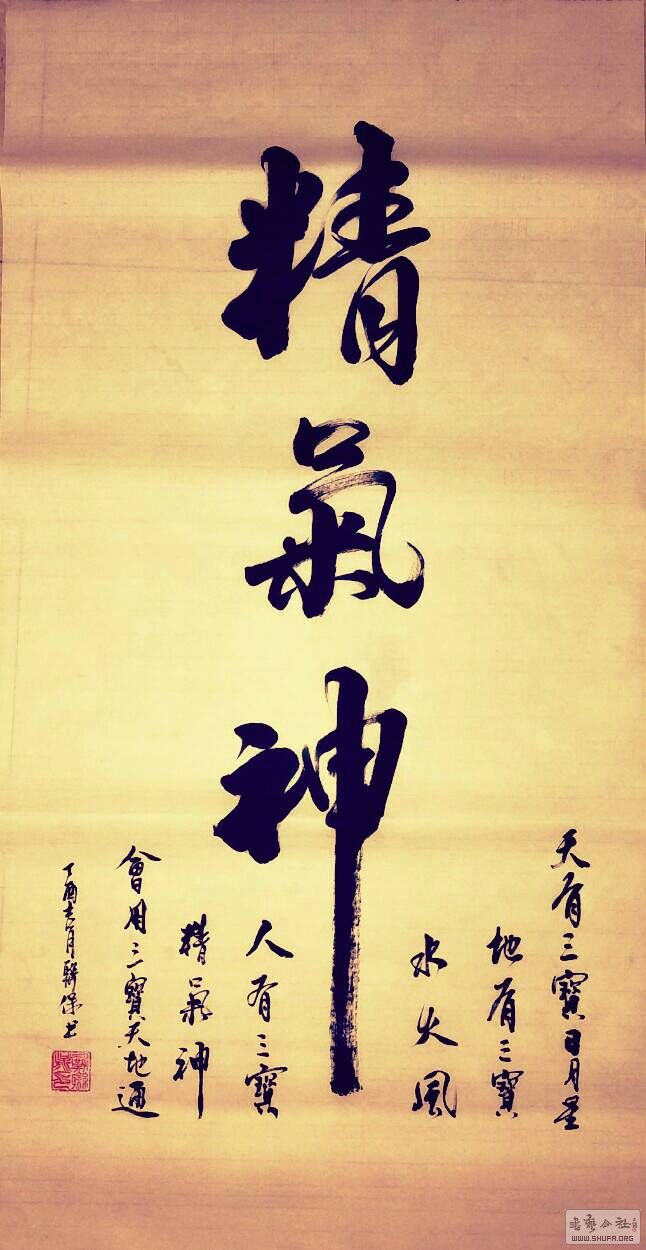 精氣神
天有三寶日月星
地有三寶
水火風
人有三寶
精氣神
會用三寶天地通
丁酉
WWW.SHUFA.ORG